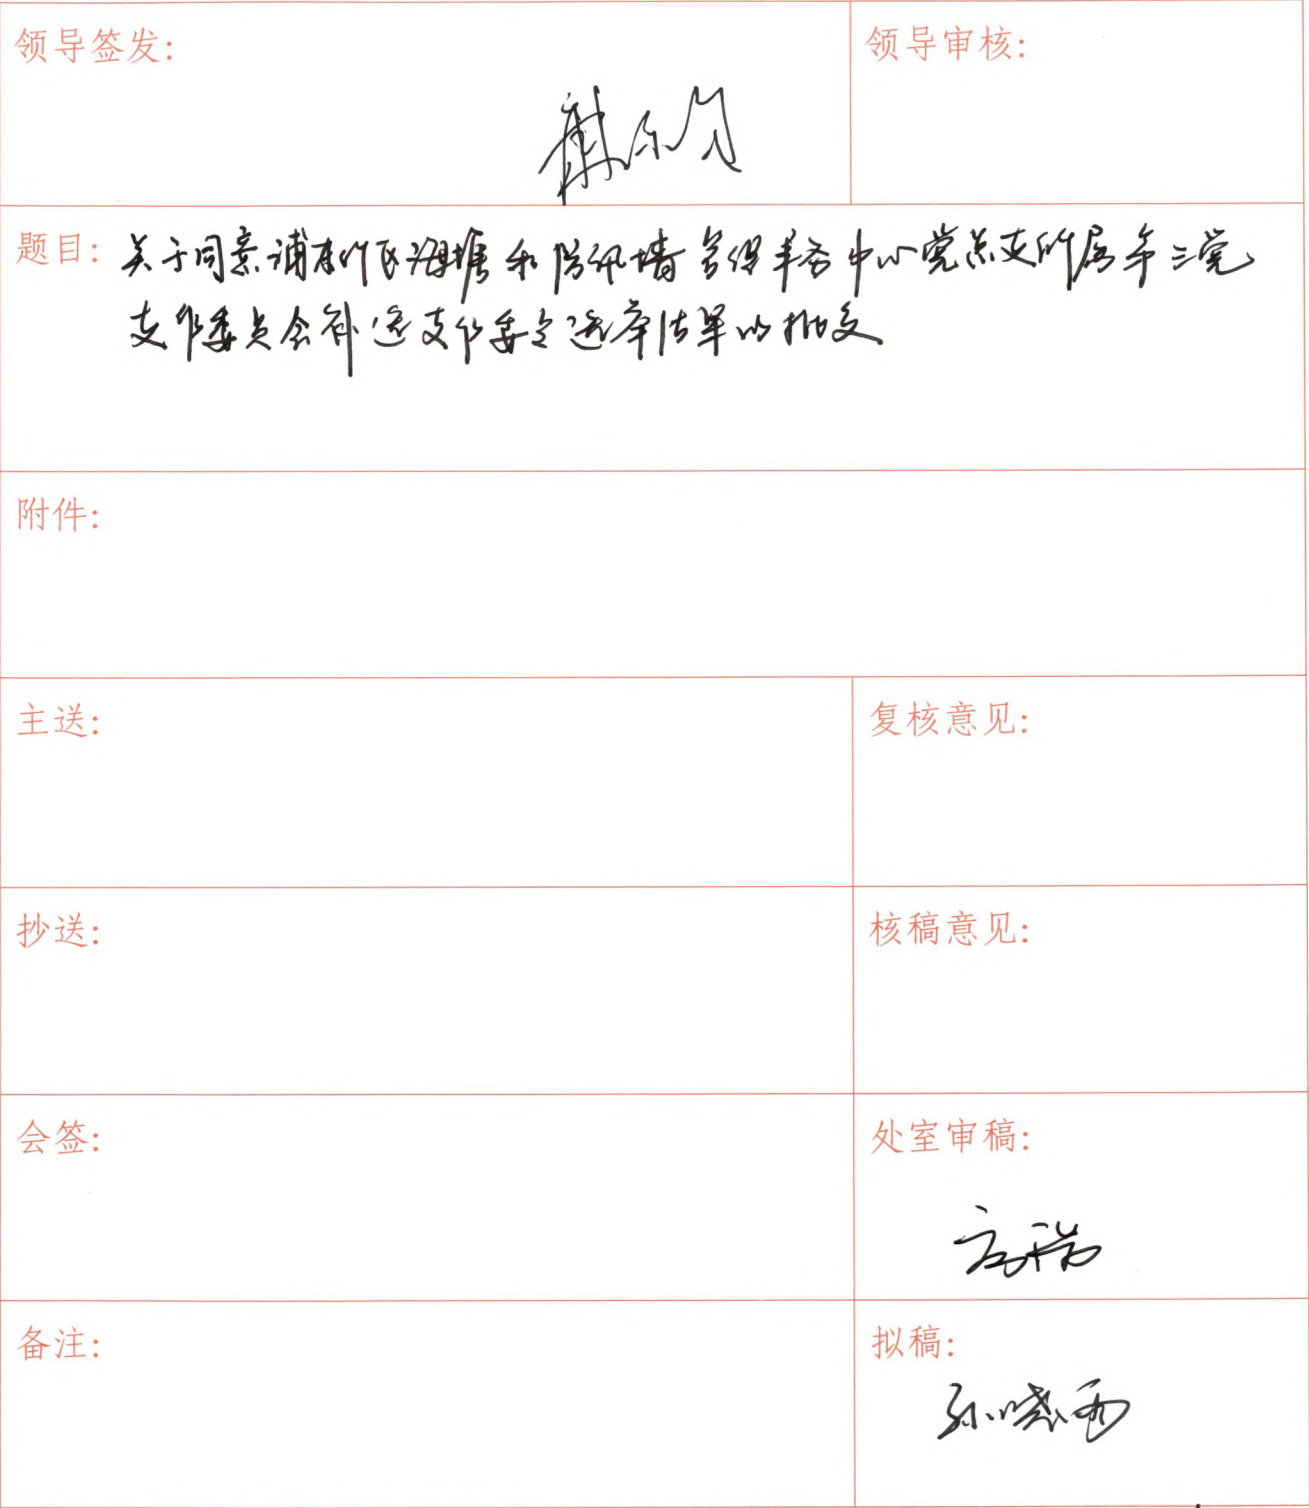 领导签发:
领导审核:
题目: 关于同意浦东新区海塘和防汛墙管理事务中心党总支所属第三党
支部委员会补选支部委员选举结果的批复
附件:
主送:
复核意见:
抄送:
核稿意见:
会签:
处室审稿:
高瑞
备注:
拟稿:
孙晓雨